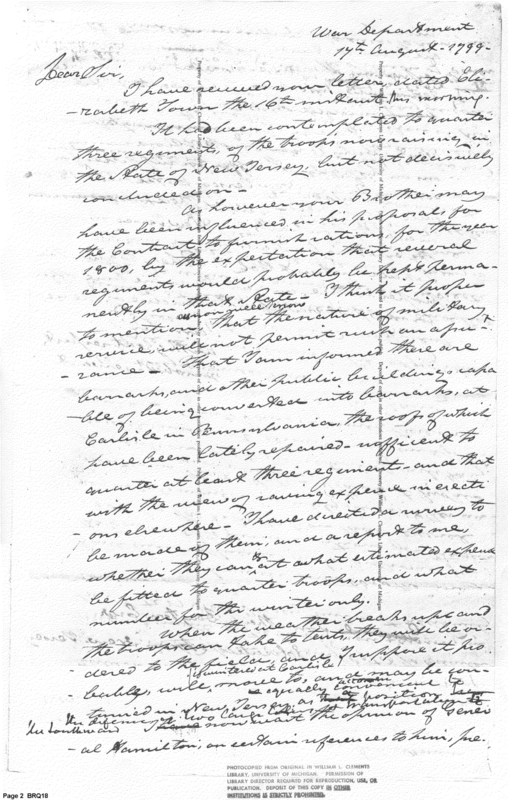 War Department
17th August. 1799.
Dear Sir,
I have received your letter dated Eli-
-zabeth Town the 16th instant this morning.
It had been contemplated to quarter
three regiments, of the troops now raising, in
the State of New Jersey, but not decisively
concluded on—
As however your Brother may
have been influenced in his proposals for
the Contract to furnish rations, for the year
1800, by the expectation that several
regiments would probably be kept perma-
nently in that State— I think it proper
to mention that the nature of military
service, will not permit such an assu-
-rance— That I am informed there are
barracks, and other public buildings capa
-ble of being converted into barracks, at
Carlisle in Pennsylvania, the roofs of which
have been lately repaired— sufficient to
quarter at least three regiment— and that
with the view of saving expence in erecti
-ons elsewhere— I have directed a survey to
be made of them, and a report to me,
whether they can & at what estimated expence
be fitted to quarter troops, and what
number for the winter only.
When the weather breaks up and
the troops can take to tents, they will be or-
-dered to the field, and I suppose it pro
-bably, will, move to, and may be con-
if quartered at Carlisle
-tinued in New Jersey, as
equally
position
the Southward
now want the opinion of Gener
-al Hamilton, on certain references to him, pre.
Property of the William L. Clements Library, University of Michigan
PHOTOCOPIED FROM ORIGINAL IN WILLIAM L. CLEMENTS
LIBRARY, UNIVERSITY OF MICHIGAN. PERMISSION OF
LIBRARY DIRECTOR REQUIRED FOR REPRODUCTION, USE, OR
PUBLICATION. DEPOSIT OF THIS COPY IN OTHER
INSTITUTIONS IS STRICTLY PROHIBITED.
Page 2 BRQ18